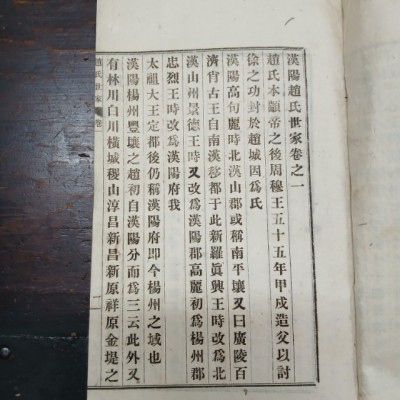 漢陽趙氏世家卷之一
趙氏本顓帝之後周穆王五十五年甲戌造父以討
徐之功封於趙城因爲氏
漢陽高句麗時北漢山郡或稱南平壤又曰廣陵百
濟肖古王自南漢移都于此新羅眞興王時改爲北
漢山州景德王時又改爲漢陽郡高麗初爲楊州郡
忠烈王時改爲漢陽府我
太祖大王定都後仍稱漢陽府即今楊州之域也
漢陽楊州豐壤之趙初自漢陽分而爲三云此外又
有林川白川橫城稷山淳昌新昌新原祥原金堤之
趙氏世家 卷一